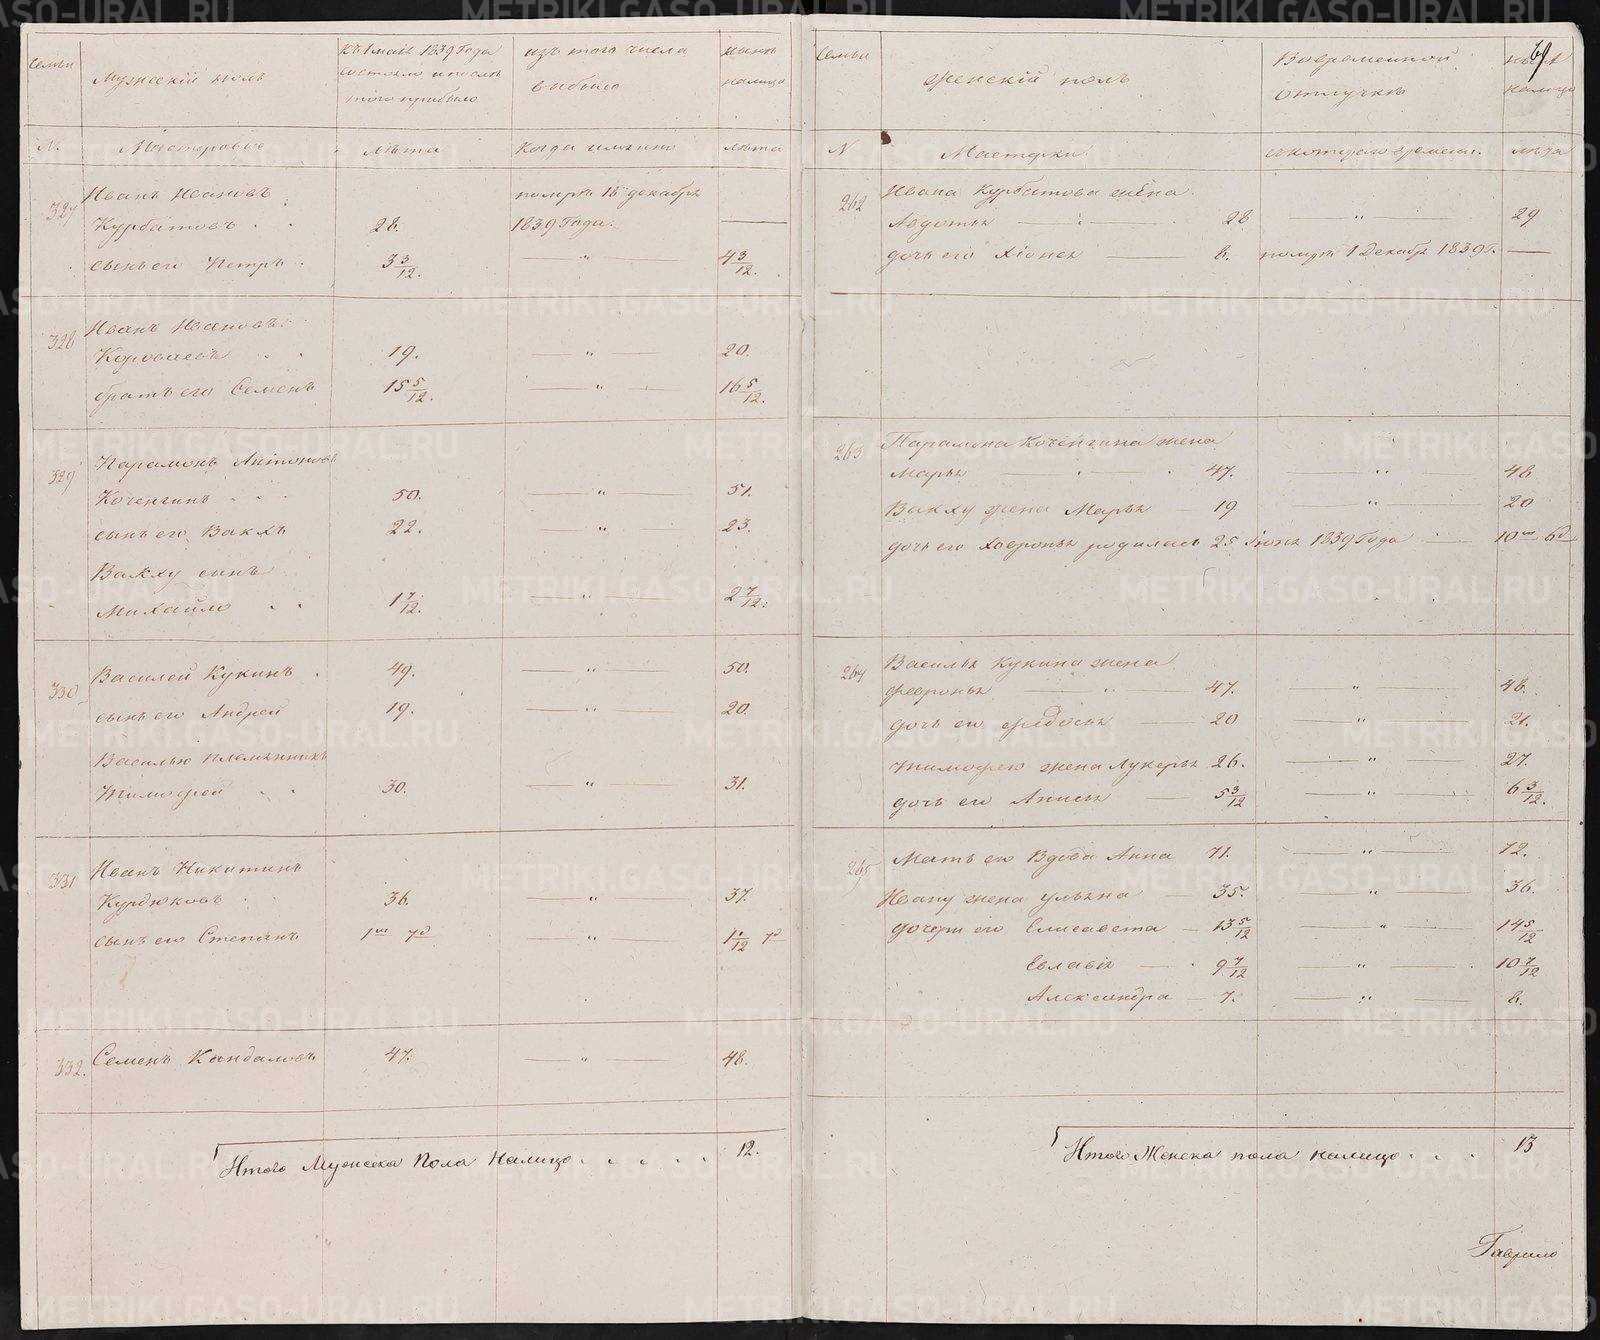 Семьи
Мужескій полъ
Къ 1 маія 1839 Года состояло и послѣ того прибыло
изъ того числа выбыло
нынѣ налицо
N.
Мастеровые
Лѣта
Когда именно
лѣта
327
Иванъ Ивановъ
помръ 15 декабря
Курбатовъ . .
28.
1839 Года.
сынъ его Петръ .
3 3/12.
— " —
4 3/12.
328
Иванъ Ивановъ
Короваевъ . .
19.
— " —
20.
братъ его Семенъ
15 5/12.
— " —
16 5/12.
329
Парамонъ Антоновъ
Коченгинъ . . .
50.
— " —
51.
сынъ его Вакхъ
22.
— " —
23.
Вакху сынъ
Михайло . .
1 7/12.
— " —
2 7/12.
330
Василей Кукинъ .
49.
— " —
50.
сынъ его Андрей
19.
— " —
20.
Василью племянникъ
Тимофей . .
30.
— " —
31.
331
Иванъ Никитинъ
Курдюковъ . .
36.
— " —
37.
сынъ его Степанъ
1м 7д
— " —
1 1/12 7д
332.
Семенъ Кандаловъ
47.
— " —
48.
Итого Мужеска Пола Налицо . . . . . 12.
Семьи
Женскій полъ
Вовременной отлучкѣ
69
налицо
N
Мастерки
съ котораго времени.
лѣта
262
Ивана Курбатова жена
Авдотья — 28
— " —
29
дочь его Хіонея — 8.
помръ 1 Декабр 1839 г. —
263
Парамона Коченгина жена
Марья — 47.
— " —
48
Вакху жена Марья — 19
— " —
20
дочь его Хавронья родилась 25 Іюня 1839 Года — 10м 6д
264
Василья Кукина жена
Февронья — " — 47.
— " —
48.
дочь его Федосья — 20
— " —
21.
Тимофею жена Лукерья 26.
— " —
27.
дочь его Анисья — 5 3/12
— " —
6 3/12.
265
Мать его Вдова Анна 71.
— " —
72.
Ивану жена Ульяна — 35.
— " —
36.
дочери его Елисавета — 13 5/12
— " —
14 5/12
Евлавія — 9 7/12
— " —
10 7/12
Александра — 7.
— " —
8.
Итого Женска пола налицо . . . 13
Гаврило
METRIKI.GASO-URAL.RU